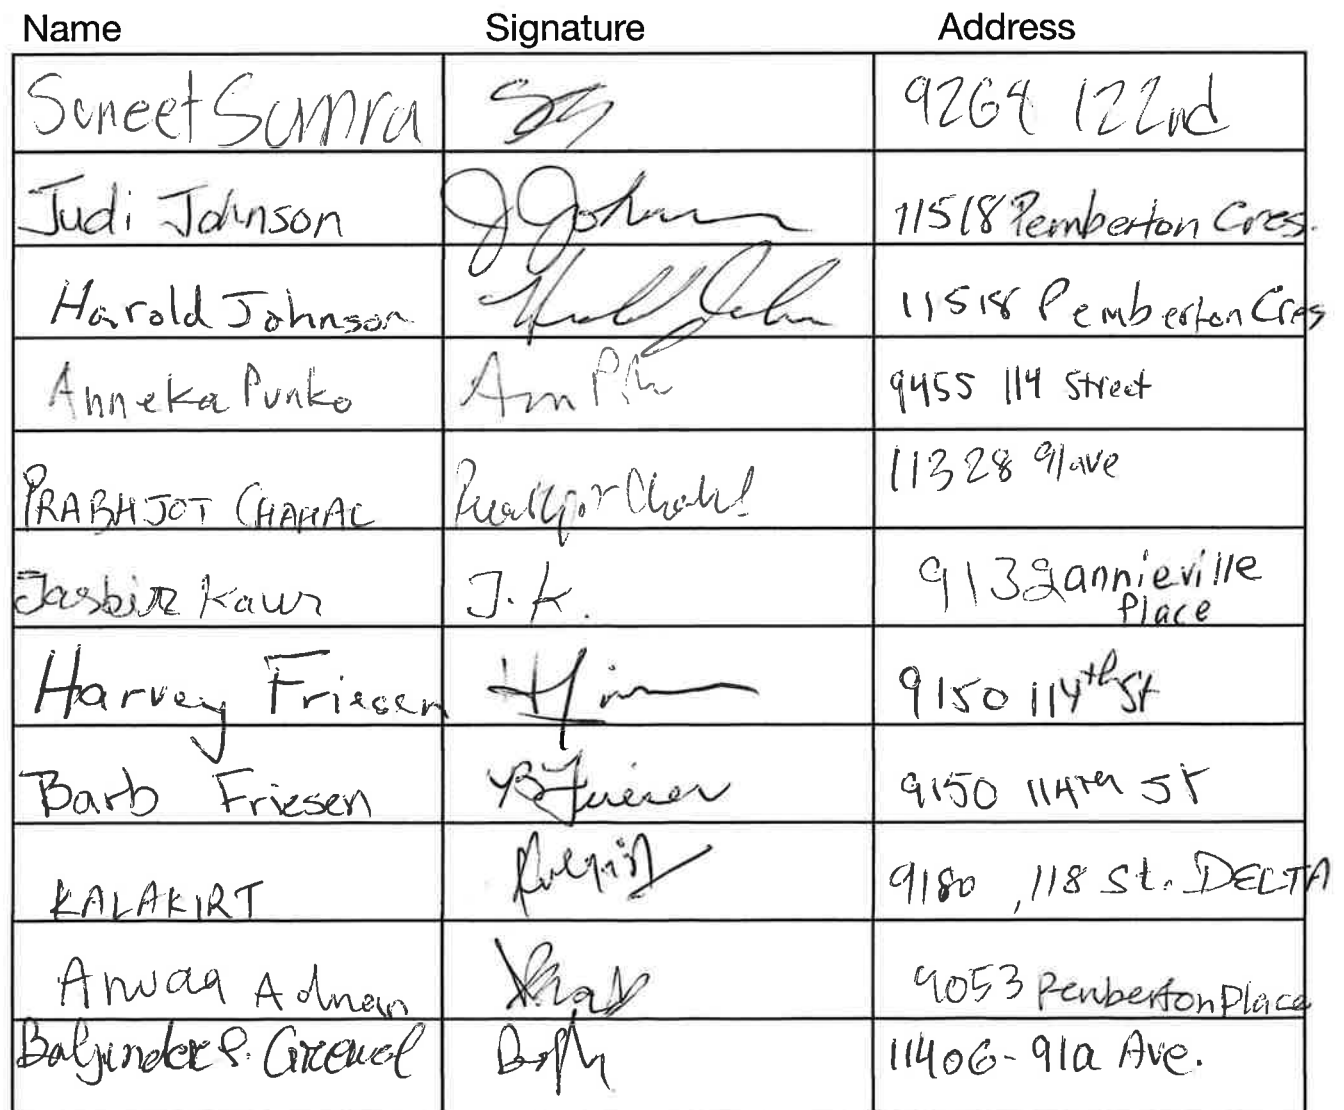 Name Signature Address
Suneet Sumra 9264 122nd
Judi Johnson J Johnson 11518 Pemberton Cres.
Harold Johnson 11518 Pemberton Cres
Anneka Punko 9455 114 Street
PRABHJOT CHAHAL 11328 91 ave
Jasbir Kaur J.K. 9132 annieville
Place
Harvey Friesen 9150 114th St
Barb Friesen B Friesen 9150 114TH ST
KALAKIRT 9180 , 118 St. DELTA
Adnan 9053 Pemberton Place
Baljinder S. Grewal 11406-91a Ave.